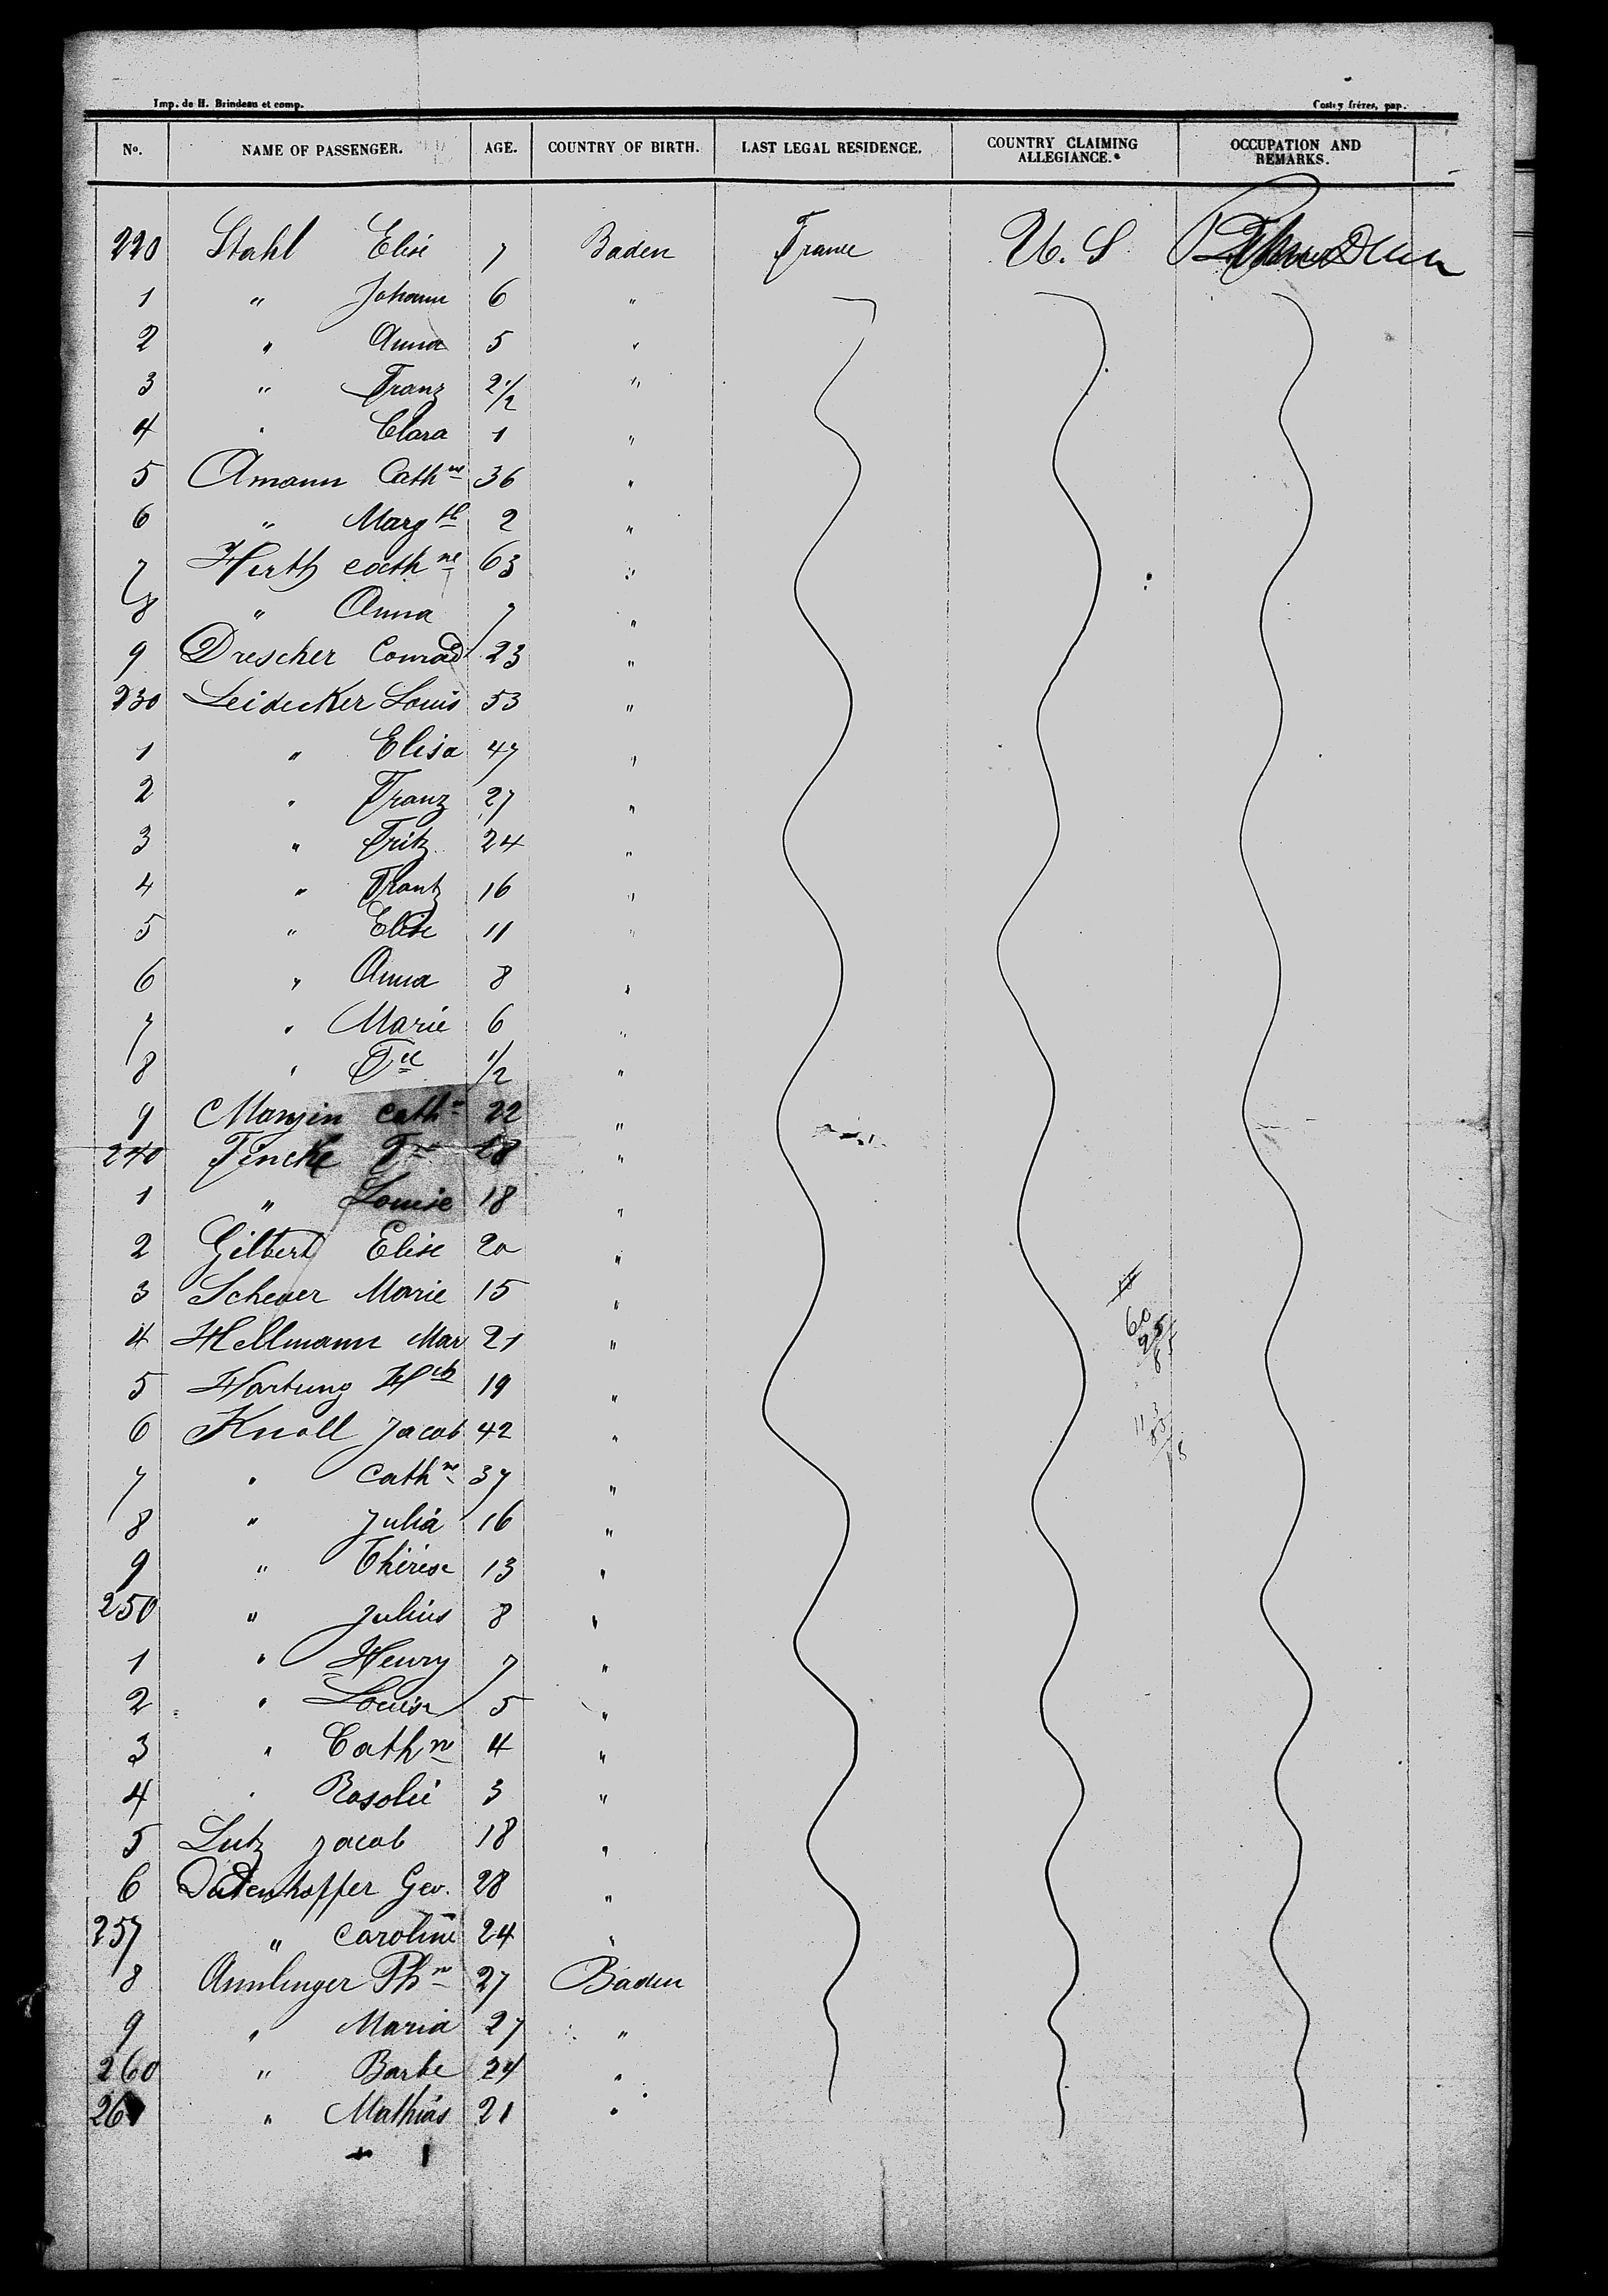 Imp. de H. Brindeau et comp. Costey frères, pap.
No. NAME OF PASSENGER. AGE. COUNTRY OF BIRTH. LAST LEGAL RESIDENCE. COUNTRY CLAIMING ALLEGIANCE.* OCCUPATION AND REMARKS.
220 Stahl Elise 7 Baden France U. S
1 " Johann 6 "
2 " Anna 5 "
3 " Franz 2 1/2 "
4 " Clara 1 "
5 Amann Cathne 36 "
6 " Margth 2 "
7 Hirth Cathne 63 "
8 " Anna 7 "
9 Drescher Conrad 23 "
230 Leidecker Louis 53 "
1 " Elisa 47 "
2 " Franz 27 "
3 " Fritz 24 "
4 " Frantz 16 "
5 " Elise 11 "
6 " Anna 8 "
7 " Marie 6 "
8 " 1/2 "
9 Mangin Cathe 22 "
240 Fincke 28 "
1 " Louise 18 "
2 Gilbert Elise 20 "
3 Scheuer Marie 15 "
4 Hellmann Mar 21 "
5 Hartung Hch 19 "
6 Knoll Jacob 42 "
7 " Cathne 37 "
8 " Julia 16 "
9 " Thérèse 13 "
250 " Julius 8 "
1 " Henry 7 "
2 " Louise 5 "
3 " Cathne 4 "
4 " Rosalie 3 "
5 Lutz Jacob 18 "
6 Geo. 28 "
257 " Caroline 24 "
8 27 Baden
9 " Maria 27 "
260 " Barbe 24 "
261 " Mathias 21 "